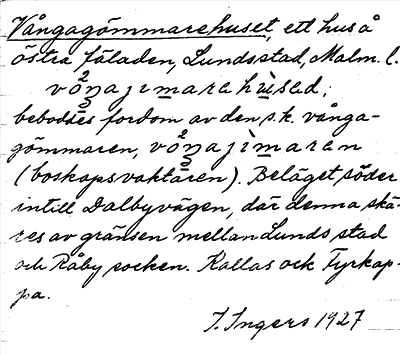 Vångagömmarehuset, ett hus å
östra fäladen, Lunds stad, Malm. l.
vo᷎ŋajımarahùsad;
beboddes fordom av den s.k. vånga-
gömmaren, voŋajìmaran
(boskapsvaktaren). Beläget söder
intill Dalbyvägen, där denna skä-
res av gränsen mellan Lunds stad
och Råby socken. Kallas ock Tyrkap-
pa.
I. Ingers 1927